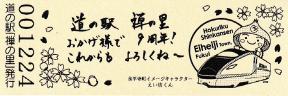 道の駅 禅の里発行
001224
道の駅 禅の里
おかげ様で 9周年!
これからも よろしくね〜
永平寺町イメージキャラクター
えい坊くん
Hokuriku
Shinkansen
Eiheiji
Town.
Fukui